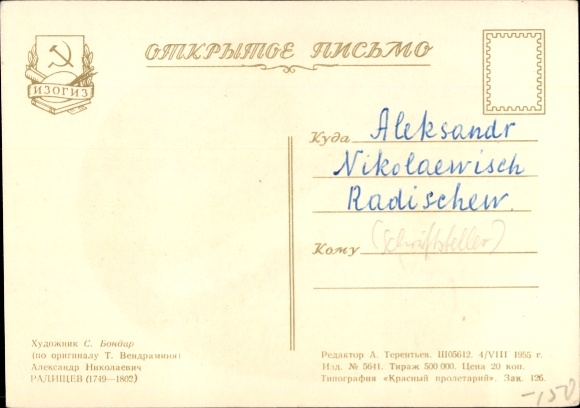 ИЗОГИЗ
ОТКРЫТОЕ ПИСЬМО
Куда Aleksandr
Nikolaewisch
Radischew.
Кому (Schriftsteller)
Художник С. Бондар
(по оригиналу Т. Вендрамини)
Александр Николаевич
РАДИЩЕВ (1749—1802)
Редактор А. Терентьев. Ш05612. 4/VIII 1955 г.
Изд. № 5641. Тираж 500 000. Цена 20 коп.
Типография «Красный пролетарий». Зак. 126.
-150